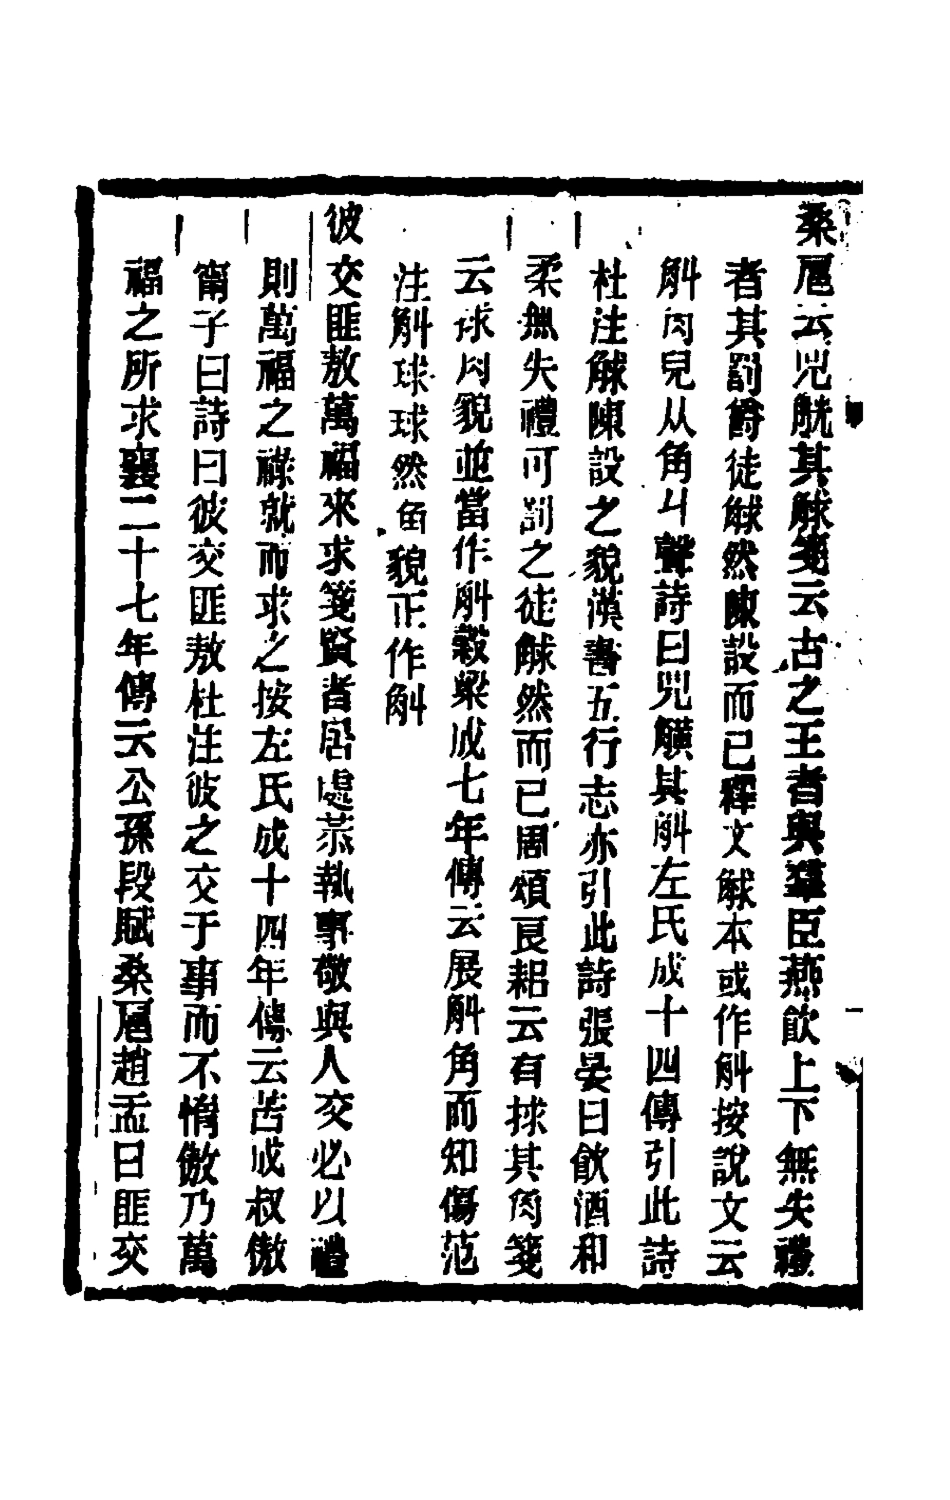 桑扈云兕觥其觩箋云古之王者與羣臣燕飮上下無失禮
者其罰爵徒觩然陳設而已釋文觩本或作斛按說文云
斛角皃从角丩聲詩曰兕觵其斛左氏成十四傳引此詩
杜注觩陳設之貌漢書五行志亦引此詩張晏曰飮酒和
柔無失禮可罰之徒觩然而已周頌良耜云有捄其角箋
云捄角貌並當作斛穀梁成七年傳云展斛角而知傷范
注斛球球然角貌正作斛
彼交匪敖萬福來求箋賢者居處恭執事敬與人交必以禮
則萬福之祿就而求之按左氏成十四年傳云苦成叔傲
甯子曰詩曰彼交匪敖杜注彼之交于事而不惰傲乃萬
福之所求襄二十七年傳云公孫段賦桑扈趙孟曰匪交